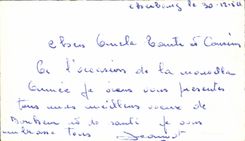 Cherbourg le 30-12-60
Chers Oncle Tante et Cousin
A l'occasion de la nouvelle
Année je viens vous présenter
tous mes meilleurs voeux de
Bonheur et de santé je vous
embrasse tous